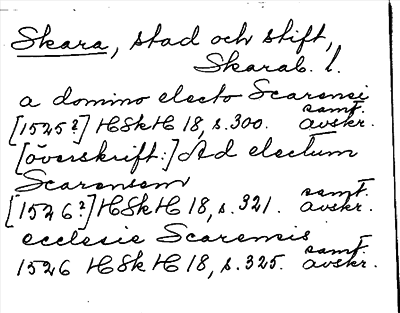 Skara, stad och stift,
Skarab. l.
a domino electo Scarensi
[1525?] HSkH 18, s. 300. samt. avskr.
[överskrift:] Ad electum
Scarensem
[1526?] HSkH 18, s. 321. samt. avskr.
ecclesie Scarensis
1526 HSkH 18, s. 325. samt. avskr.